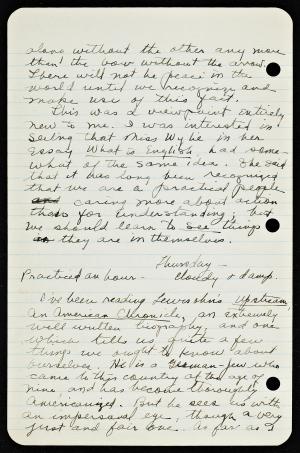 alone without the other any more
than the bow without the arrow.
There will not be peace in the
world until we recognize and
make use of this fact.
This was a viewpoint entirely
new to me. I was interested in
seeing that Miss Wylie in her
essay What is English had some-
what of the same idea. She said
that it has long been recognized
that we are a practical people
and caring more about action
than for understanding, but
we should learn to see things
as they are in themselves.
Thursday -
Practiced an hour - cloudy & damp.
I've been reading Lewisohn's Upstream,
an American Chronicle, an extremely
well written biography, and one
which tells us quite a few
things we ought to know about
ourselves. He is a German-Jew who
came to this country at the age of
nine and has become thoroughly
Americanized. But he sees us with
an impersonal eye, though a very
just and fair one. As far as I